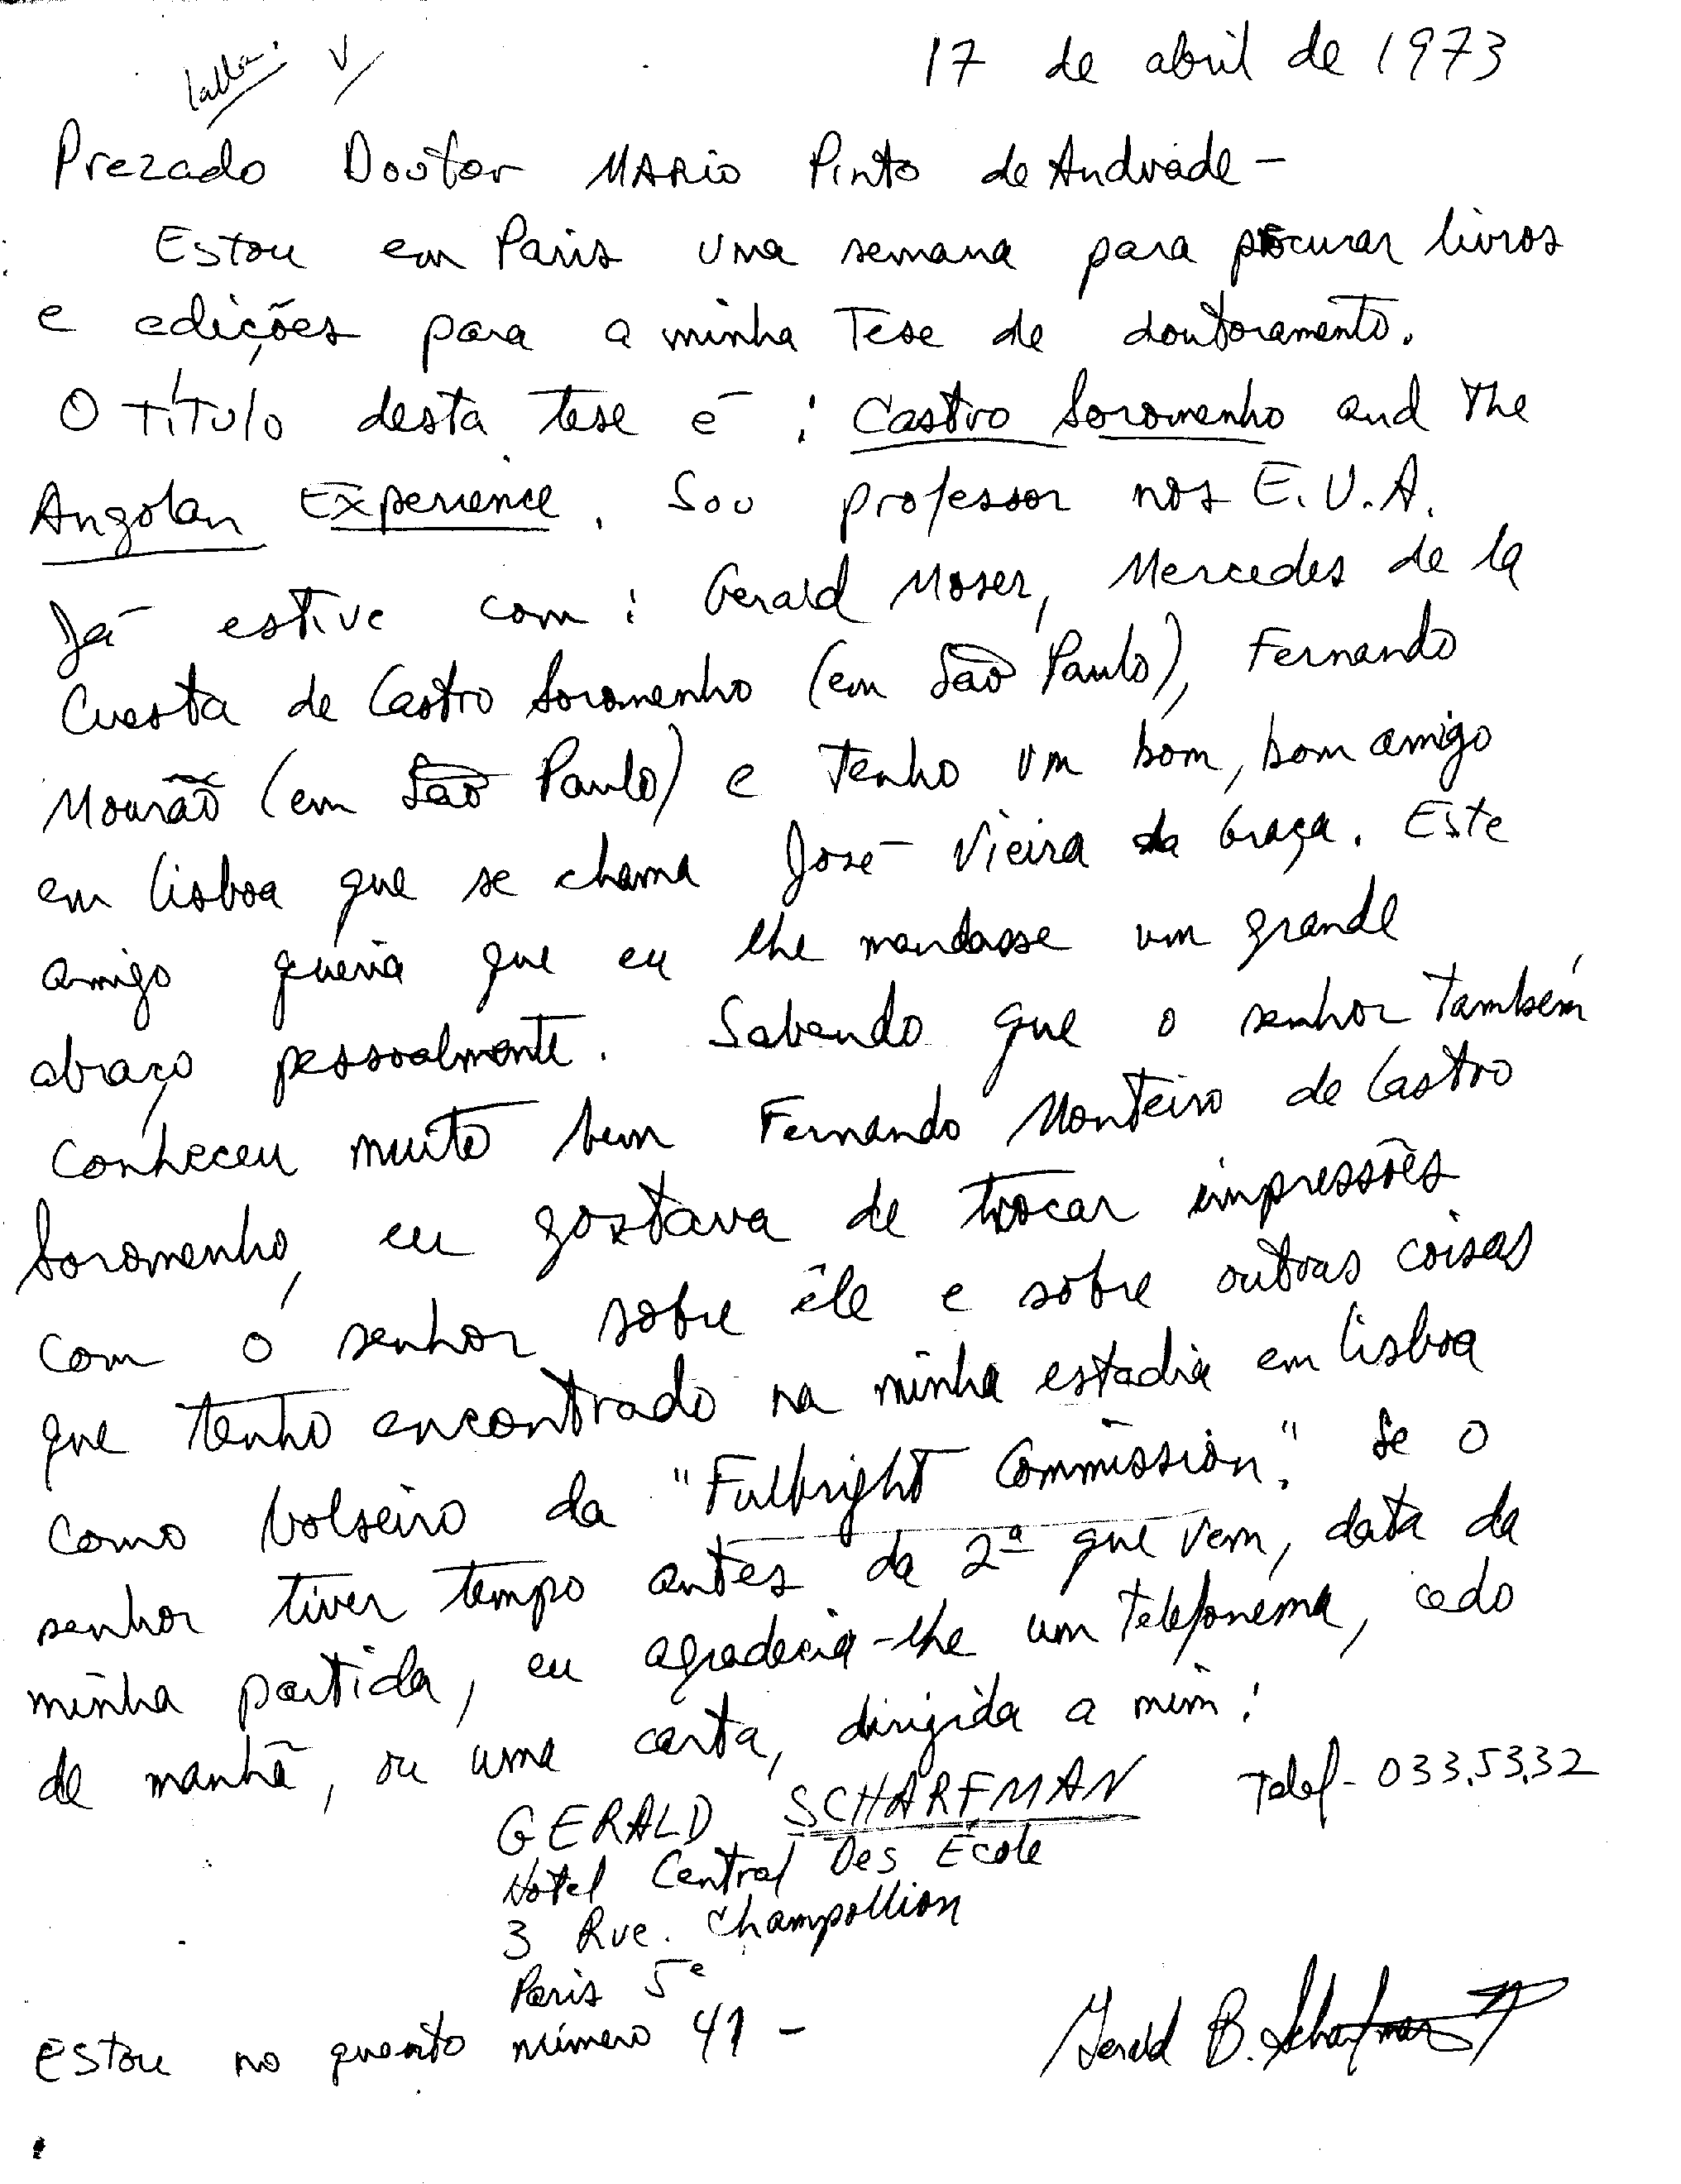 17 de abril de 1973
Prezado Doutor MARIO Pinto de Andrade -
Estou em Paris uma semana para procurar livros
e edições para a minha Tese de doutoramento.
O Título desta tese é : Castro Soromenho and The
Angolan Experience. Sou professor nos E.U.A.
Já estive com : Gerald Moser, Mercedes de la
Cuesta de Castro Soromenho (em São Paulo), Fernando
Mourão (em São Paulo) e Tenho um bom, bom amigo
em Lisboa que se chama José Vieira da Graça. Este
amigo queria que eu lhe mandasse um grande
abraço pessoalmente. Sabendo que o senhor também
conheceu muito bem Fernando Monteiro de Castro
Soromenho, eu gostava de trocar impressões
com o senhor sobre êle e sobre outras coisas
que tenho encontrado na minha estadia em Lisboa
como bolseiro da "Fulbright Commission." Se o
senhor tiver tempo antes da 2ª que vem, data da
minha partida, eu agradecia-lhe um telefonema, cedo
de manhã, ou uma carta, dirigida a mim :
GERALD SCHARFMAN Telef - 033.53.32
Hotel Central Des École
3 Rue. Champollion
Paris 5e
Estou no quarto número 41 -
Gerald B. Scharfman